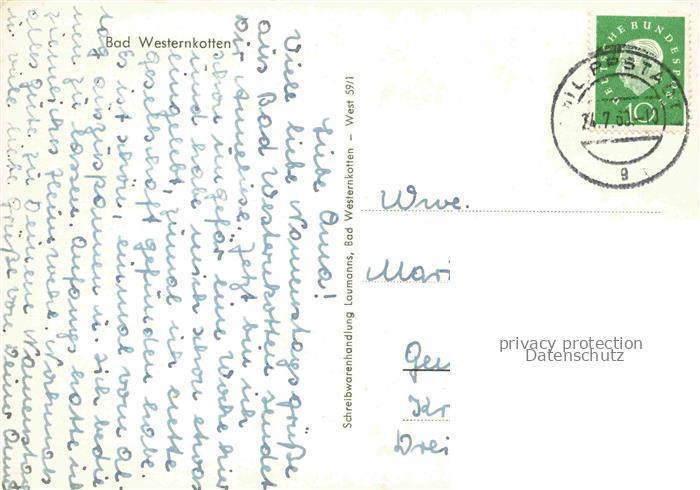 Bad Westernkotten
Liebe Oma!
Viele liebe Namenstagsgrüße
aus Bad Westernkotten sendet
Dir Anneliese. Jetzt bin ich
schon ungefär eine Woche hier
und habe mich schon etwas
eingelebt, zumal ich nette
Gesellschaft gefunden habe.
Es ist schön, einmal vom All
tag auszuspannen u. sich bedie
nen zu lassen. Anfangs hatte ich
ziemliches Heimweh. Nochmals
alles Gute zu Deinem Namenstag
u. viele liebe Grüße von Deiner
Schreibwarenhandlung Laumanns, Bad Westernkotten – West 59/1
DEUTSCHE BUNDESPOST
10
24.7.60.
g
Wwe.
Mari
Gen
Kr
Drei
privacy protection
Datenschutz